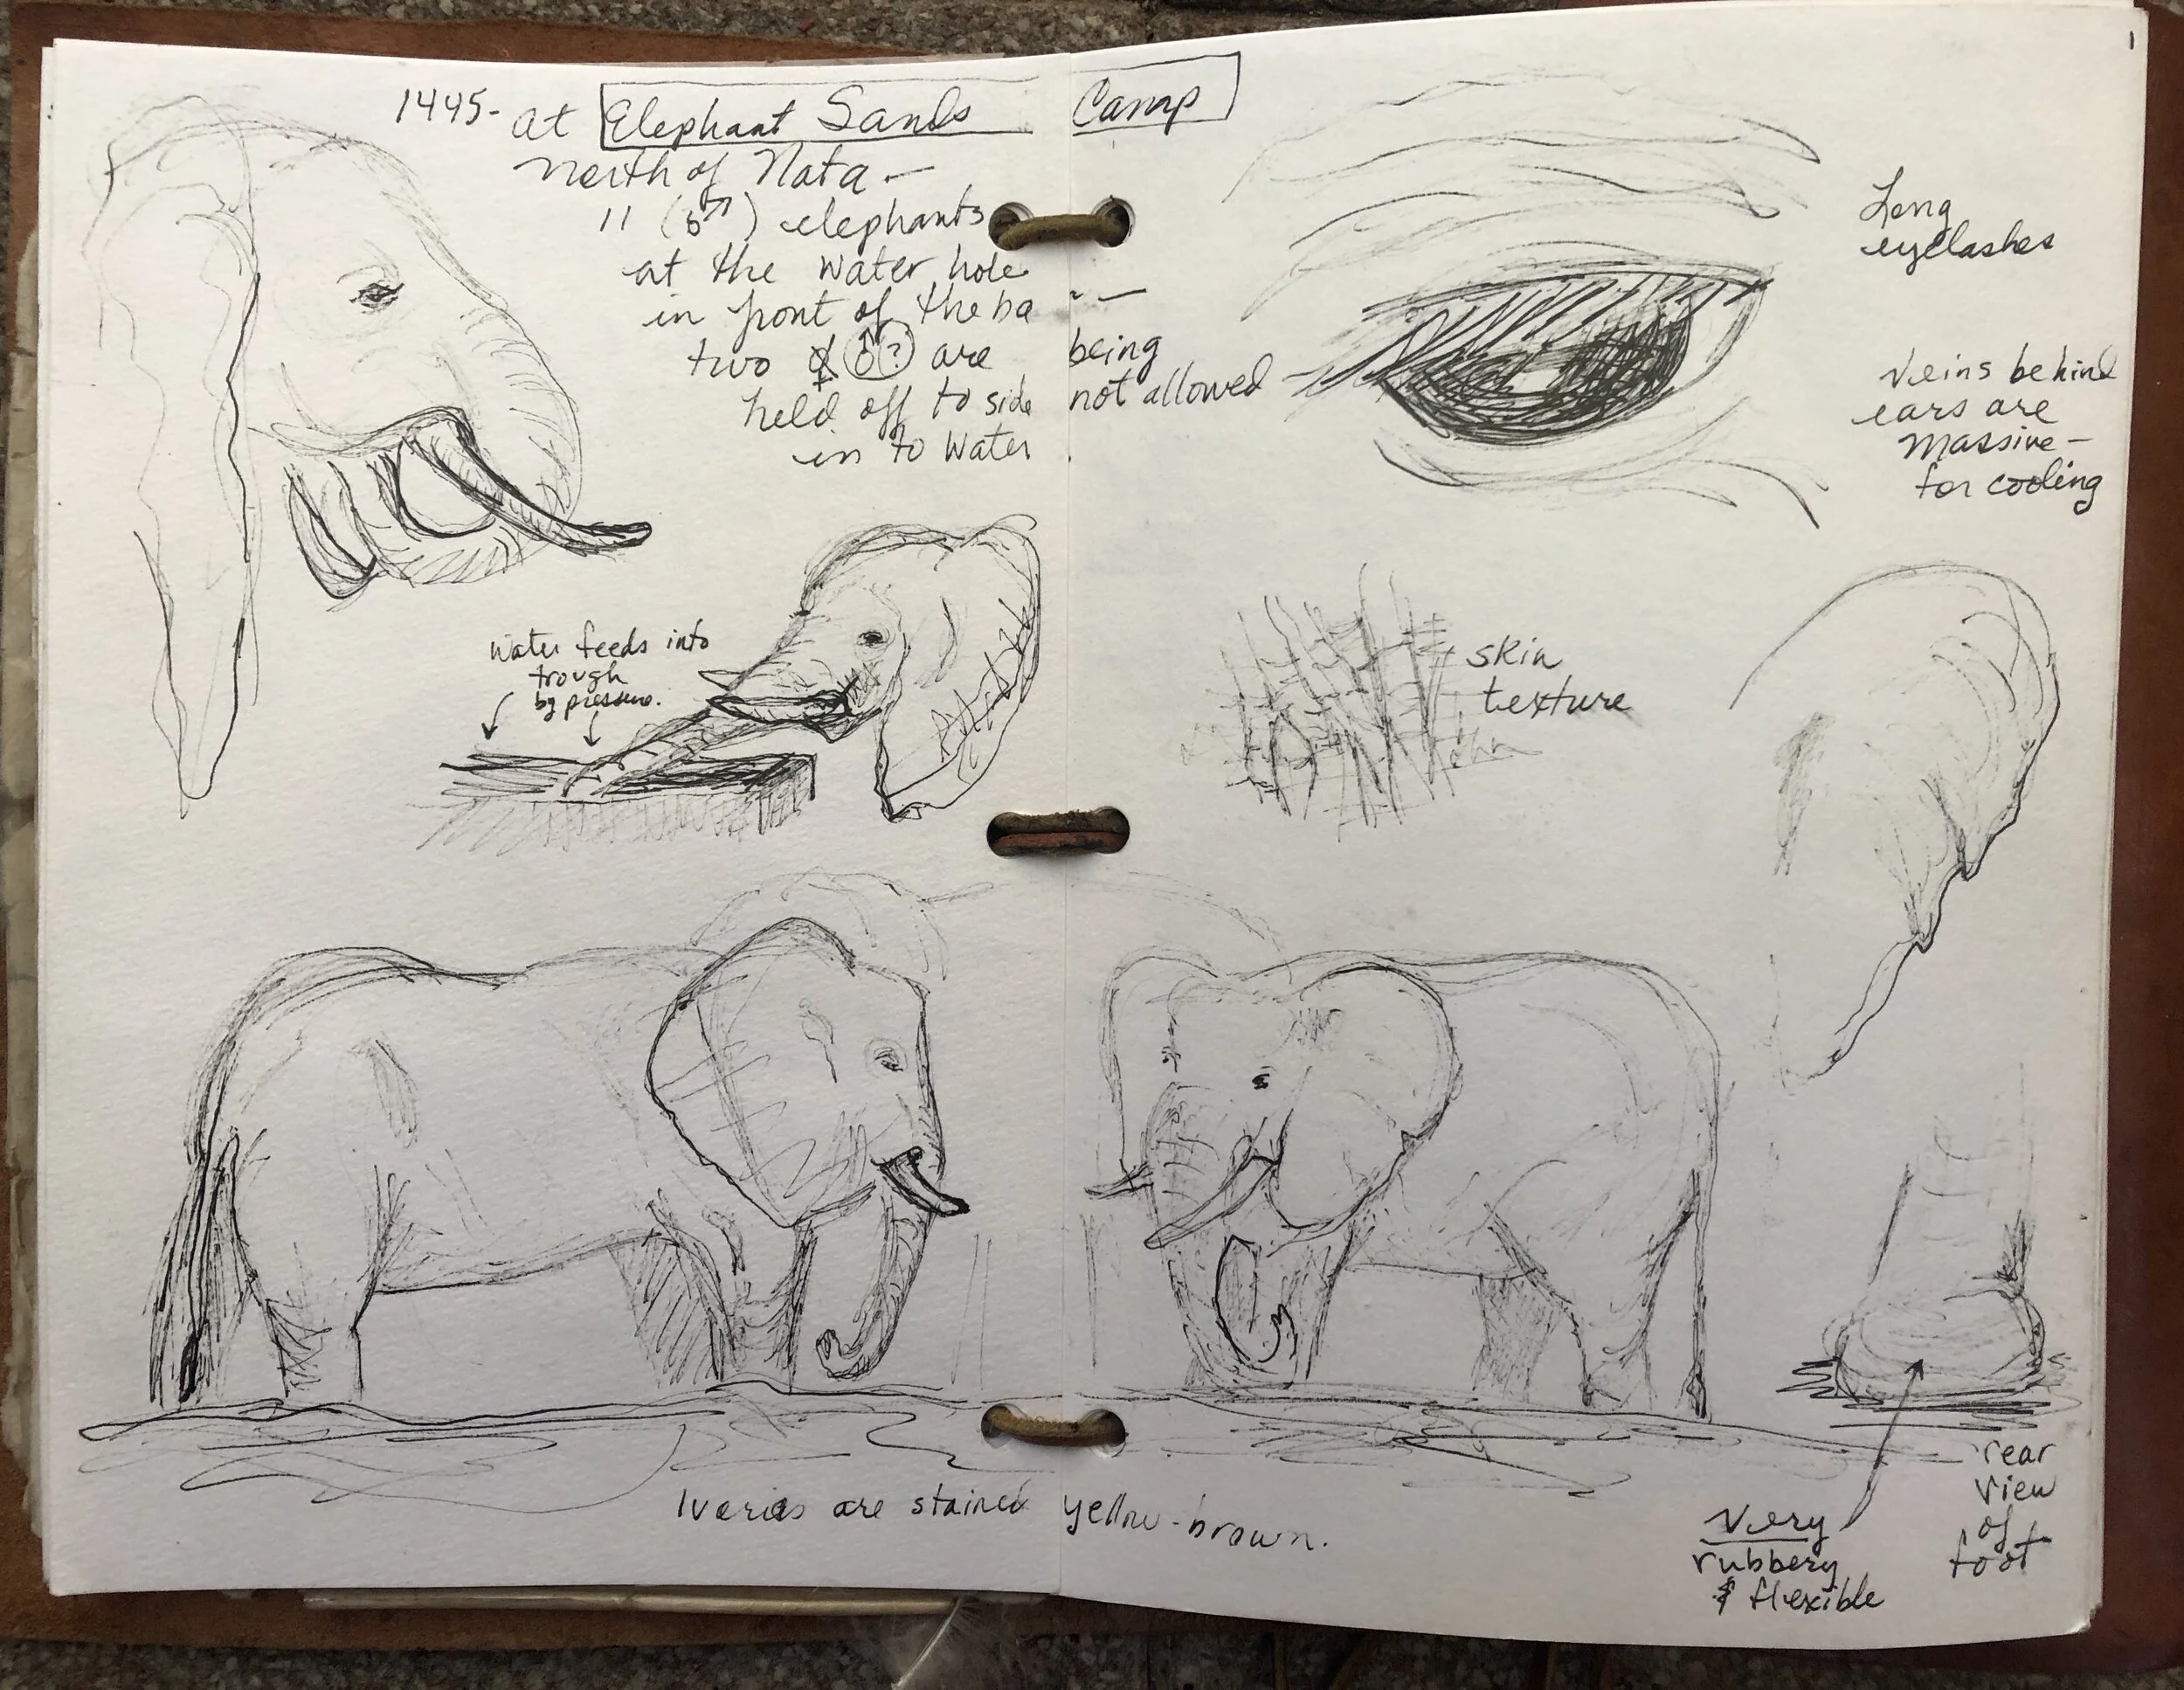 1445- at Elephant Sands Camp
north of Nata —
11 (♂) elephants
at the water hole
in front of the ba --
two ♂? are being
held off to side not allowed
in to water.
Long
eyelashes
Veins behind
ears are
massive —
for cooling
water feeds into
trough
by pressure.
skin
texture
Ivories are stained yellow-brown.
Very
rubbery
& flexible
rear
view
of
foot